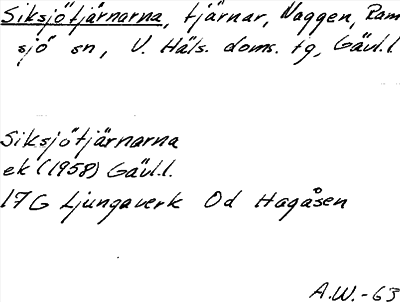 Siksjötjärnarna, tjärnar, Naggen, Ram
sjö sn, V. Häls. doms. tg, Gävl.l.
Siksjötjärnarna
ek (1958) Gävl.l.
17G Ljungaverk Od Hagåsen
A.W.-63